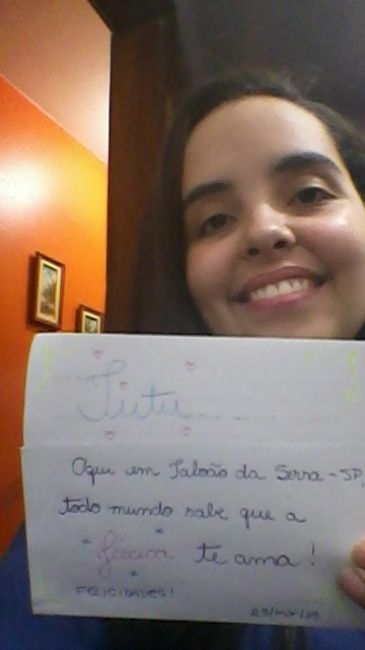 Tutu...
Aqui em Taboão da Serra - SP,
todo mundo sabe que a
te ama!
FELICIDADES!